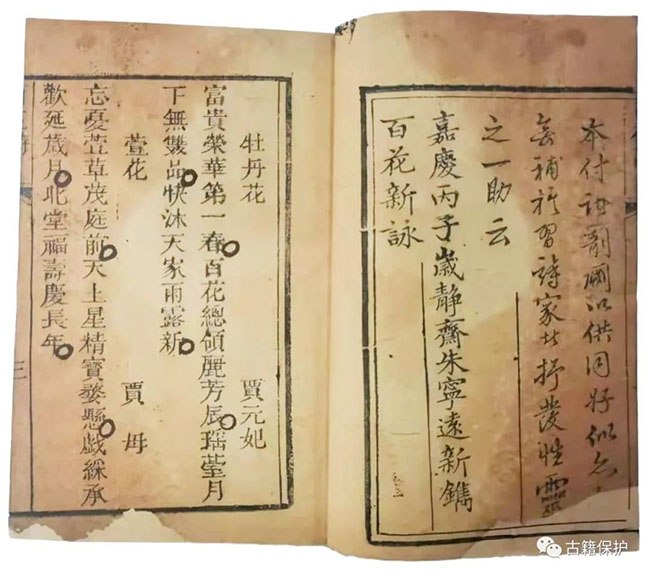 本付諸剞劂以供同好似亦
無補於習詩家抒發性靈
之一助云
嘉慶丙子歲靜齋朱寧遠新鐫
百花新詠
牡丹花 賈元妃
富貴榮華第一春百花總領麗芳辰瑤臺月
下無雙品快沐天家雨露新
萱花 賈母
忘憂萱草茂庭前天上星精寶婺懸戲綵承
歡延歲月北堂福壽慶長年
三
古籍保护